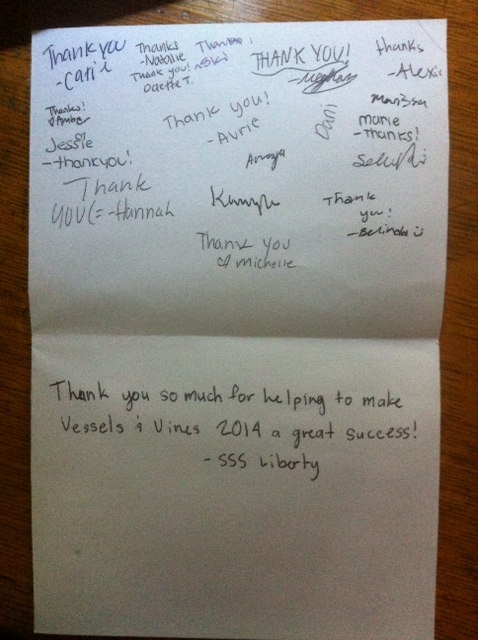 Thank you
- Catie
Thanks
- Natalie
Thank you!
Odette T.
THANK YOU!
- Meghan
thanks
- Alexis
Thanks!
♡ Amber
Jessie
- thankyou!
Thank
you (= - Hannah
Thank you!
- Avrie
Dani
Marissa
marie
- thanks!
Thank
you!
- Belinda ☺
Thank you
♡ michelle
Thank you so much for helping to make
Vessels & Vines 2014 a great success!
- SSS Liberty